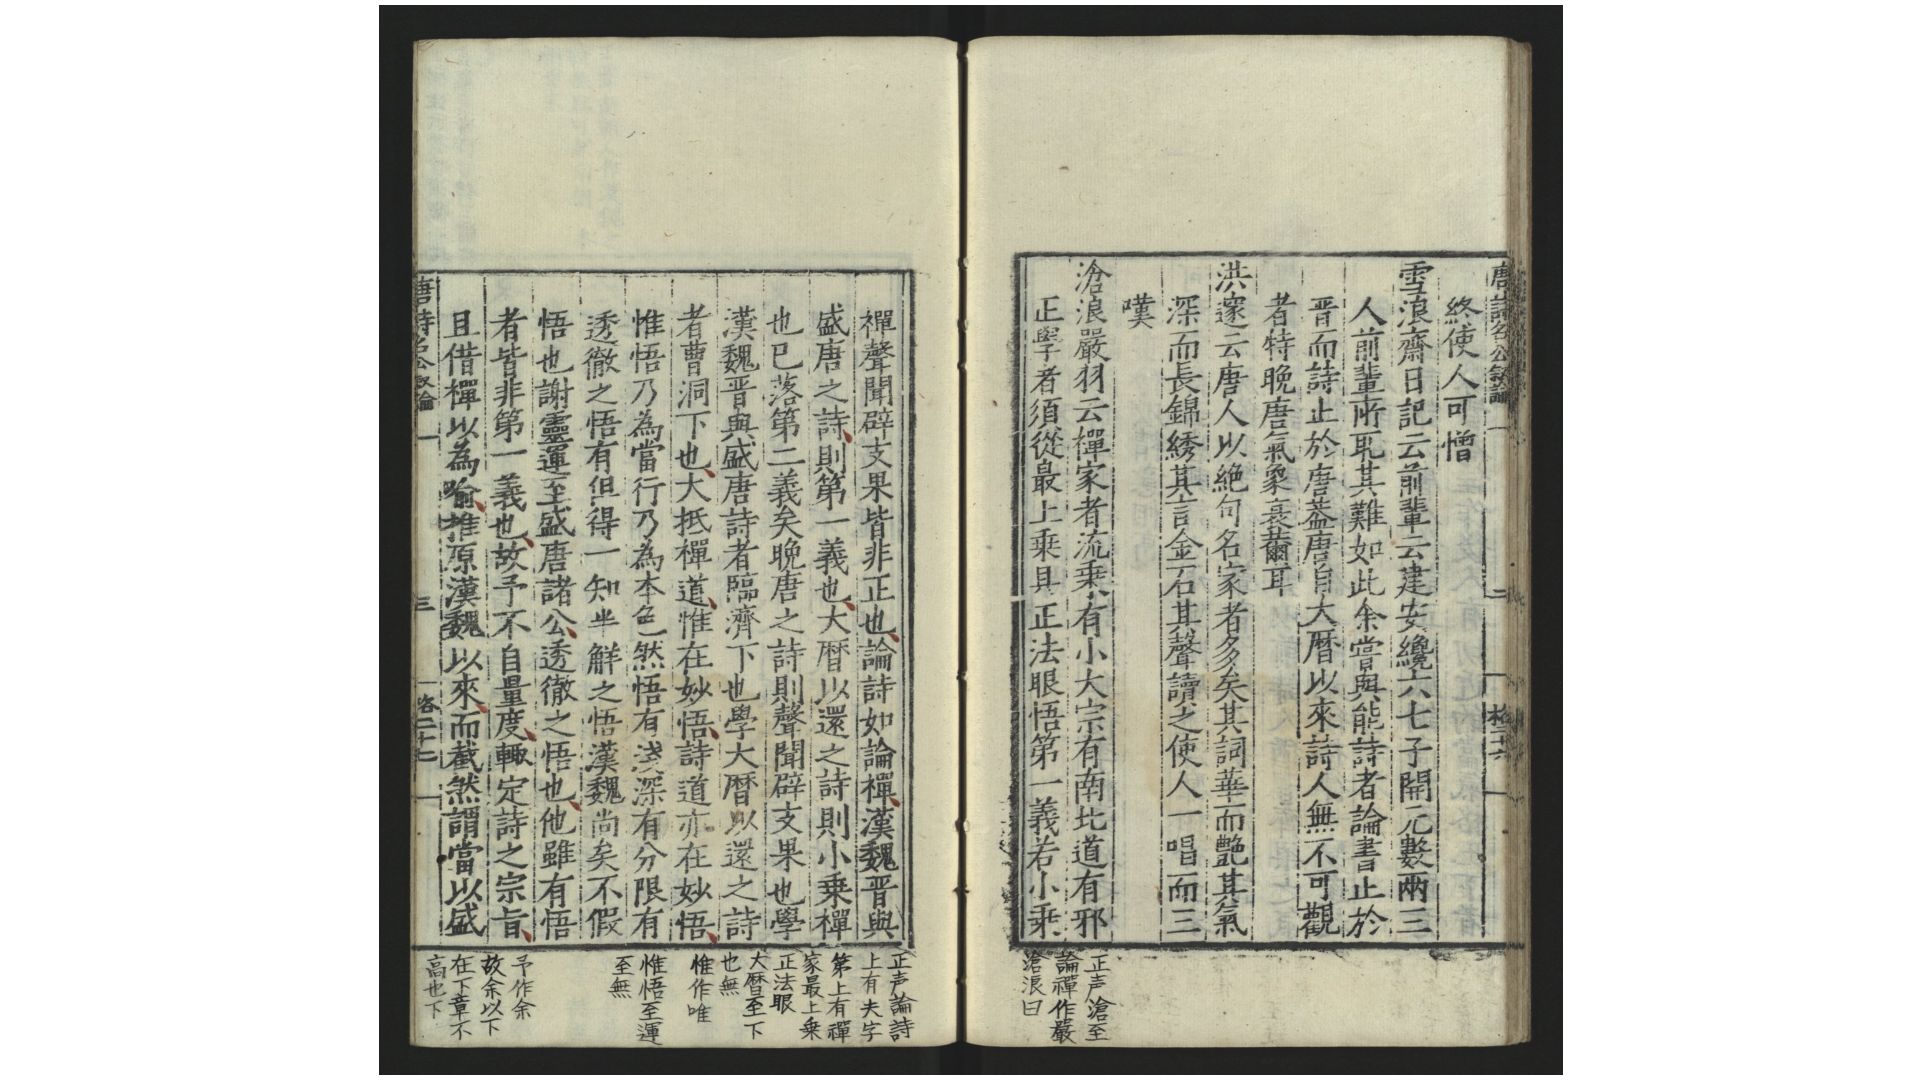 唐詩名公叙論
終使人可憎
雪浪齋日記云前輩云建安纔六七子開元數兩三
人前輩所取其難如此余嘗與能詩者論書止於
晋而詩止於唐葢唐自大曆以來詩人無不可觀
者特晚唐氣象衰薾耳
洪邃云唐人以絶句名家者多矣其詞華而艷其氣
深而長錦綉其言金石其聲讀之使人一唱而三
嘆
滄浪嚴羽云禪家者流乘有小大宗有南北道有邪
正學者須從最上乗具正法眼悟第一義若小乗
正声滄至
論禪作嚴
滄浪曰
禪聲聞辟支果皆非正也論詩如論禪漢魏晋與
盛唐之詩則第一義也大曆以還之詩則小乗禪
也已落第二義矣晚唐之詩則聲聞辟支果也學
漢魏晋與盛唐詩者臨濟下也學大曆以還之詩
者曹洞下也大抵禪道惟在妙悟詩道亦在妙悟
惟悟乃為當行乃為本色然悟有淺深有分限有
透徹之悟有但得一知半解之悟漢魏尚矣不假
悟也謝靈運至盛唐諸公透徹之悟也他雖有悟
者皆非第一義也故予不自量度輙定詩之宗旨
且借禪以為喻推原漢魏以來而截然謂當以盛
唐詩名公叙論 三 二十七
正声論詩
上有夫字
第上有禪
家最上乗
正法眼
大曆至下
也無
惟作唯
惟悟至運
至無
予作余
故余以下
在下章不
高也下